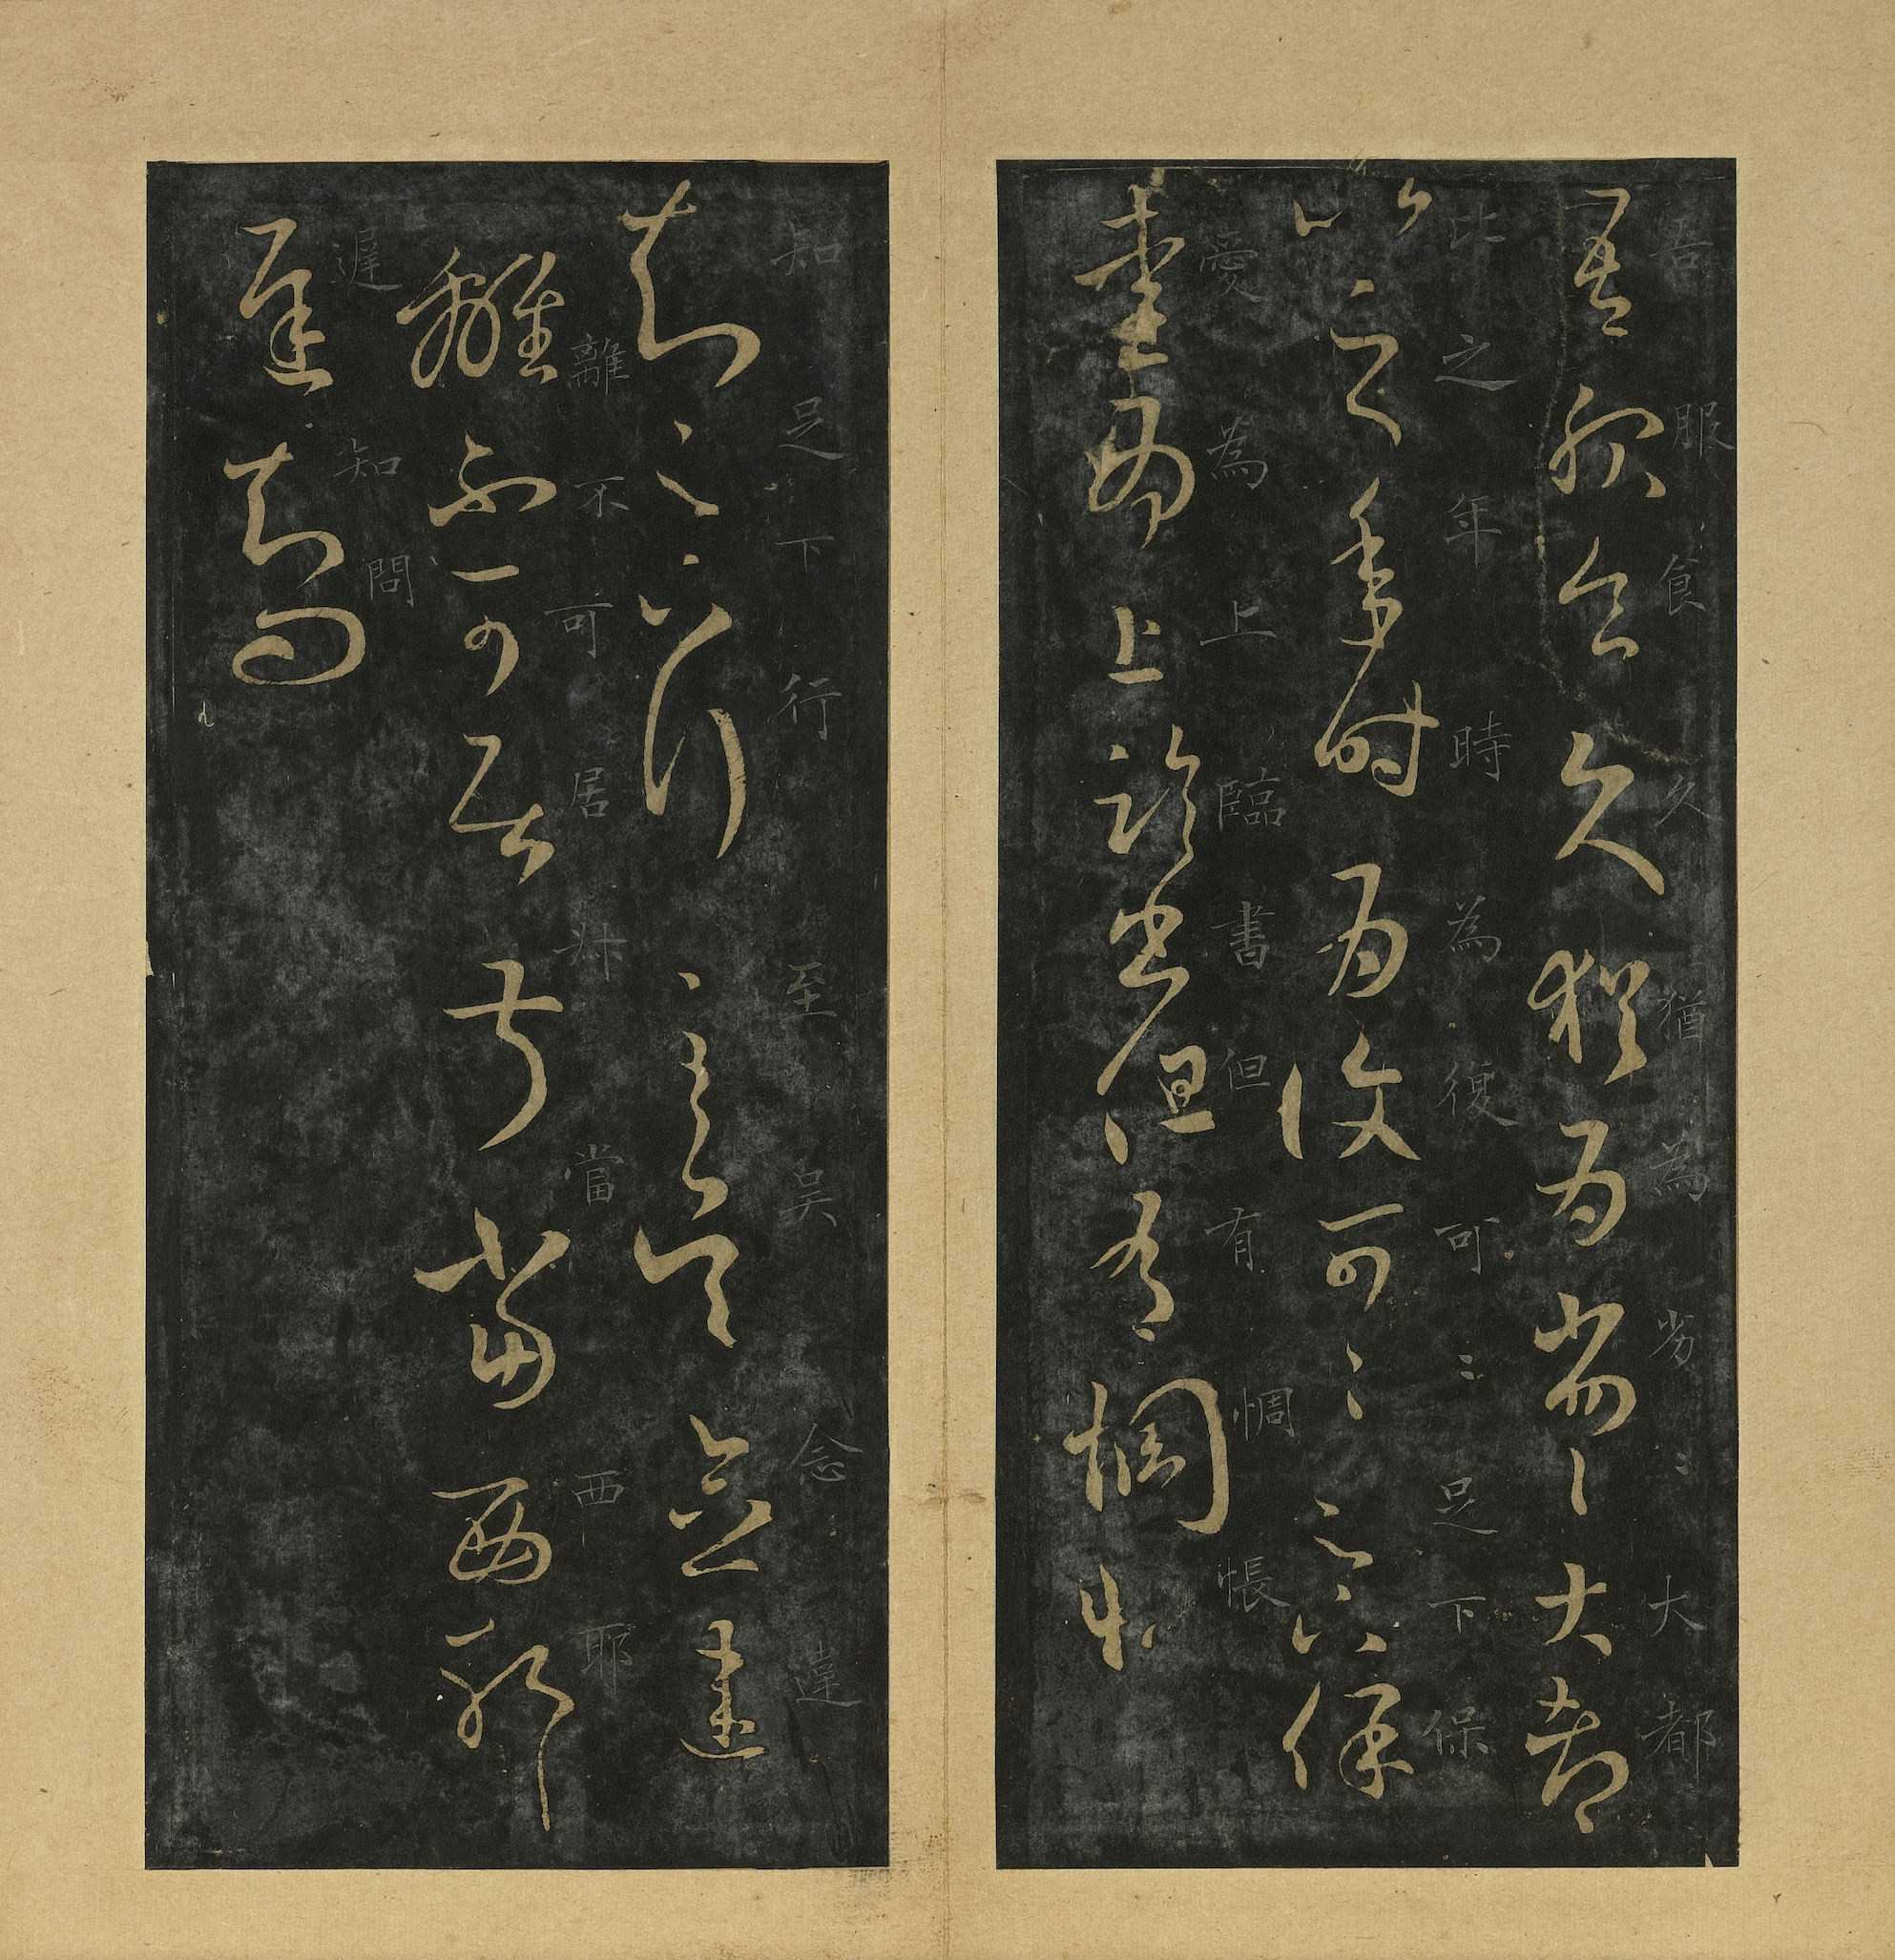 吾服食久猶為劣〻大都
吾服食久猶為劣〻大都
比之年時為復可〻足下保
比之年時為復可〻足下保
愛為上臨書但有惆悵
愛為上臨書但有惆悵
知足下行至吳念違
知足下行至吳念違
離不可居叔當西耶
離不可居叔當西耶
遲知問
遲知問